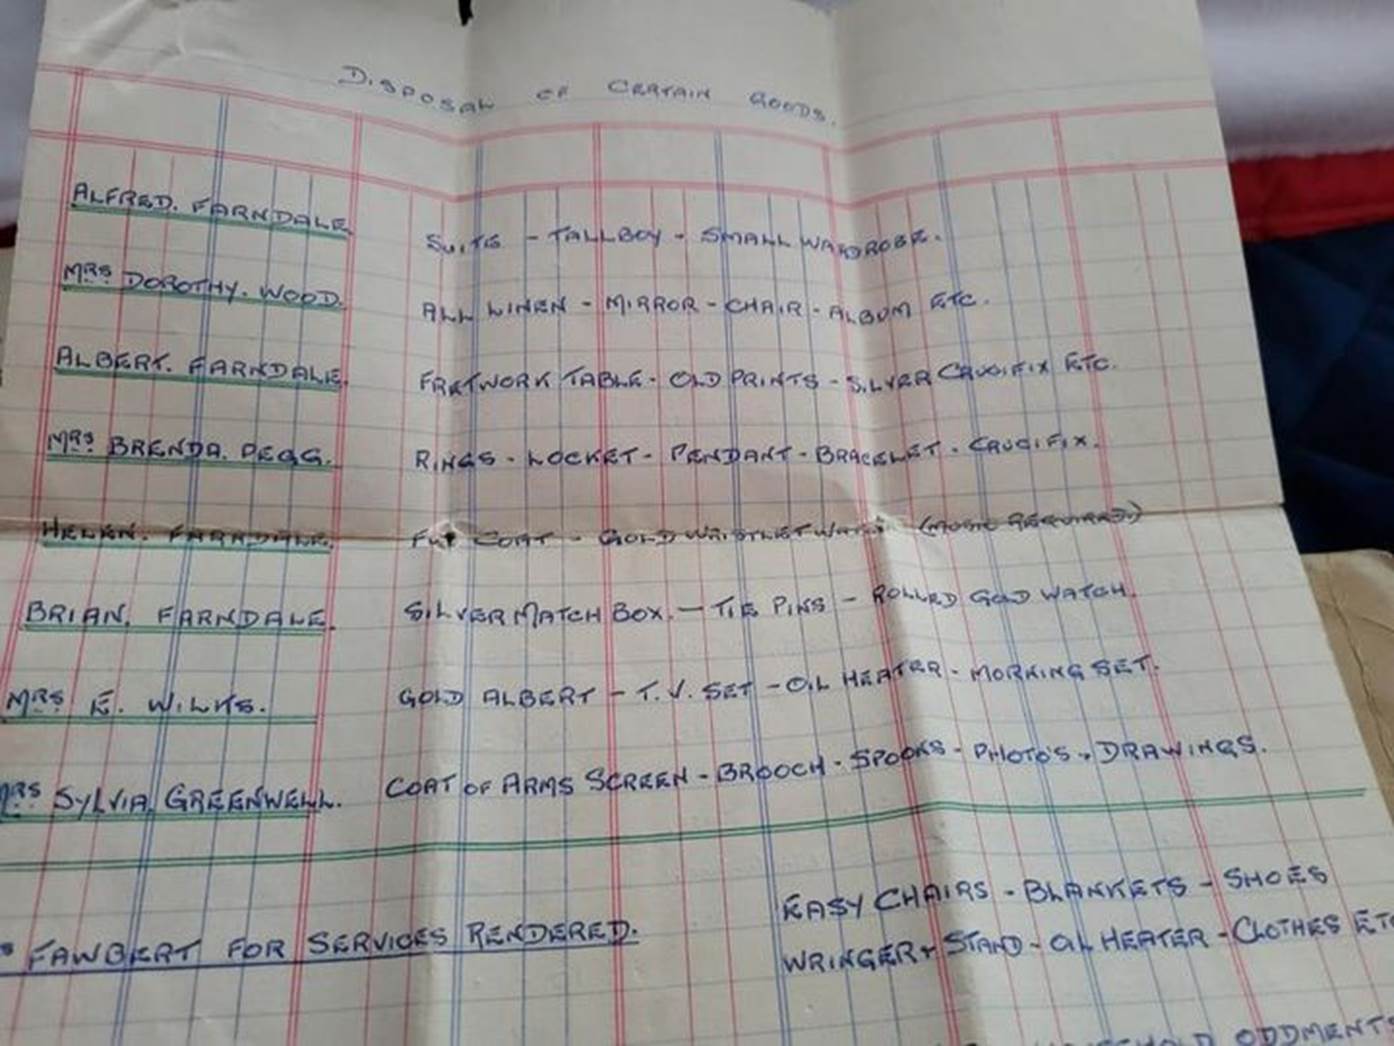 DISPOSAL OF CERTAIN GOODS.
ALFRED. FARNDALE. SUITS - TALLBOY - SMALL WARDROBE.
MRS DOROTHY. WOOD. ALL LINEN - MIRROR - CHAIR - ALBUM ETC.
ALBERT. FARNDALE. FRETWORK TABLE - OLD PRINTS - SILVER CRUCIFIX ETC.
MRS BRENDA. PEGG. RINGS - LOCKET - PENDANT - BRACELET - CRUCIFIX.
HELEN. FARNDALE. FUR COAT - GOLD WRISTLET WATCH (MUSIC REQUIRED)
BRIAN. FARNDALE. SILVER MATCH BOX. - TIE PINS - ROLLED GOLD WATCH.
MRS E. WILKS. GOLD ALBERT - T.V. SET - OIL HEATER - MORNING SET.
MRS SYLVIA. GREENWELL. COAT OF ARMS SCREEN - BROOCH - SPOONS - PHOTO'S - DRAWINGS.
FAWBERT FOR SERVICES RENDERED. EASY CHAIRS - BLANKETS - SHOES
WRINGER + STAND - OIL HEATER - CLOTHES ETC
ODDMENTS